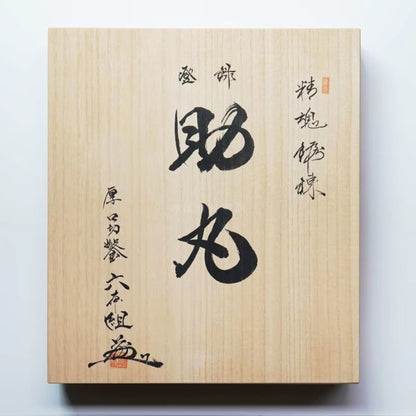 精魂鍛錬
登録
助丸
厚口鑿
六本組